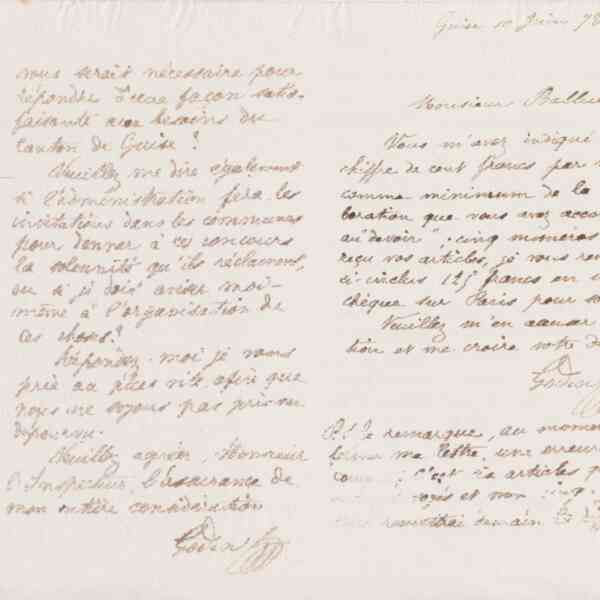 nous serait nécessaire pour
répondre d'une façon satis-
faisante aux besoins du
canton de Guise?
Veuillez me dire également
si l'administration fera les
invitations dans les communes
pour donner à ces concours
la solennité qu'ils réclament,
ou si je dois aviser moi-
même à l'organisation de
ces choses?
Répondez-moi je vous
prie au plus vite afin que
nous ne soyons pas pris au
dépourvu.
Veuillez agréer, Monsieur
l'Inspecteur, l'assurance de
mon entière considération
Godin
Guise 10 Juin 78
Monsieur
Vous m'avez indiqué
chiffre de cent francs par
comme minimum de la
boration que vous avez
au "devoir"; cinq numéros
reçu vos articles, je vous
ci-inclus 125 francs en
chèque sur Paris pour
Veuillez m'en accuser
tion et me croire votre
Godin
P.S. Je remarque, au
ma lettre, une erreur
c'est articles
et non cinq.
remettrai demain